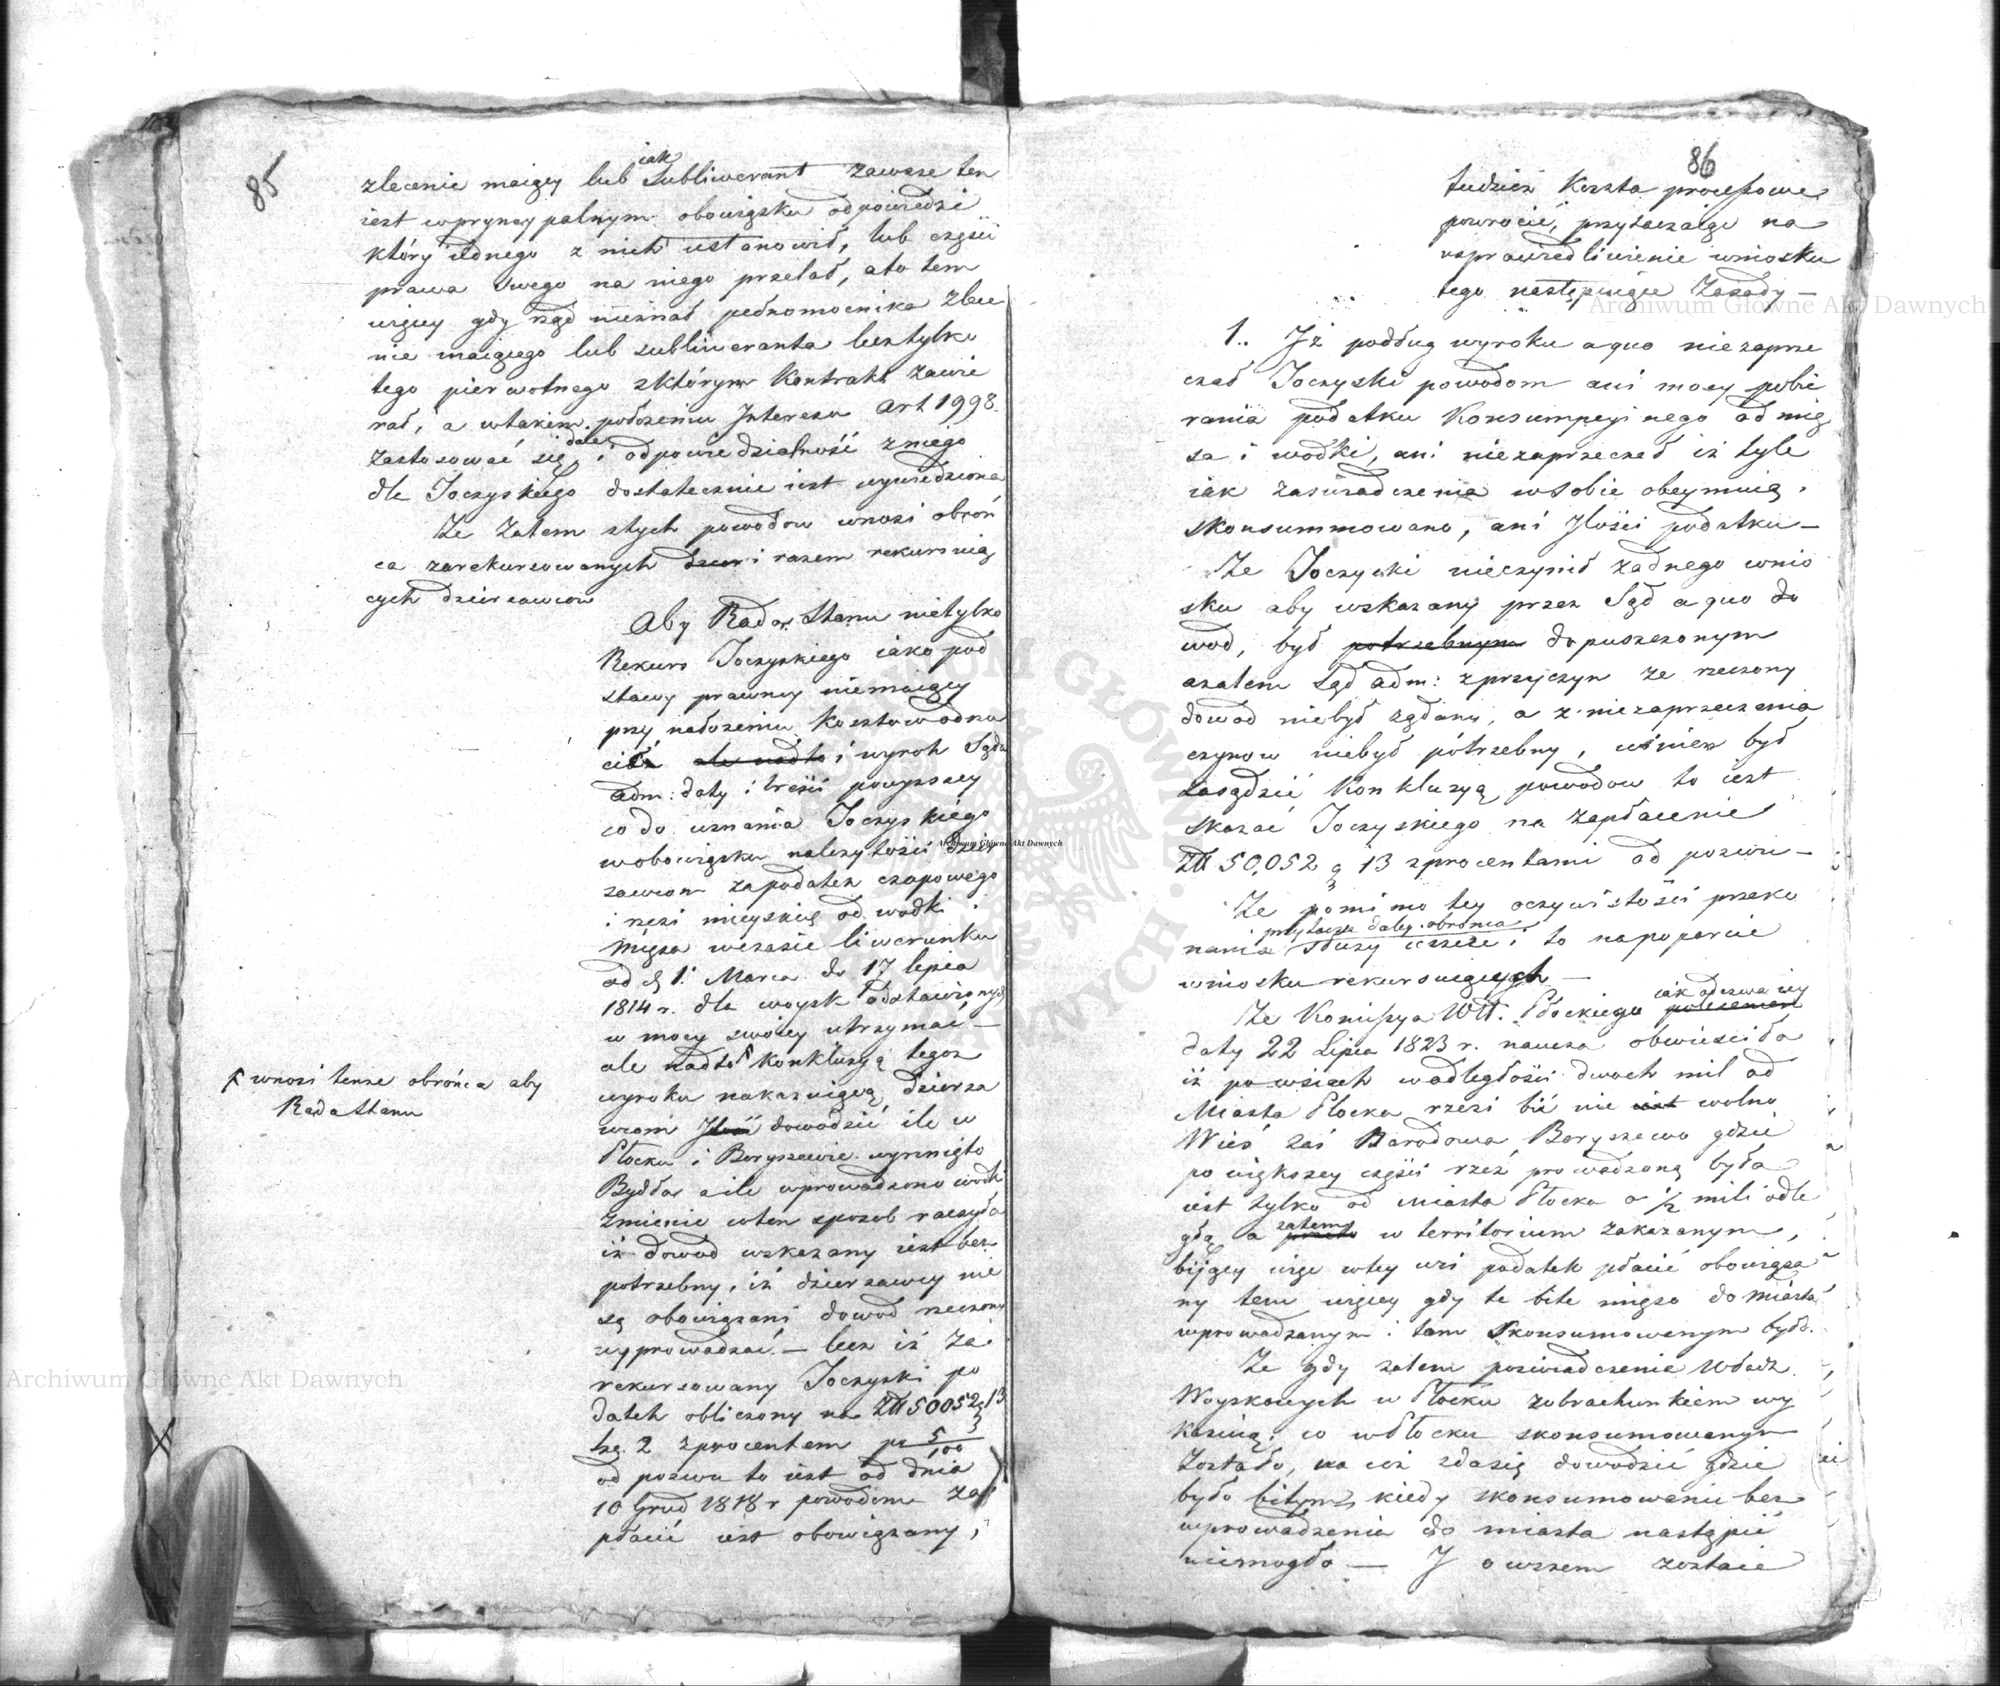 85
zlecenie maiący lub iak Subliwerant zawsze ten
iest wpryncypalnym obowiązku odpowiedzi
który iednego z nich ustanowił, lub części
prawa swego na niego przelał, a to tem
więcey gdy rząd nieznał pełnomocnika zlece
nie maiącego lub subliweranta lecz tylko
tego pierwotnego z którym Kontrakt zawie
rał, a wtakim położeniu Interesu Art 1998.
zastosować się daie i odpowiedzialność z niego
dla Joczyskiego dostatecznie iest wywiedziona
Ze Zatem z tych powodow wnosi obroń
ca zarekursowanych dzier i razem rekursuią
cych dzierzawcow
Aby Rada Stanu nietylko
Rekurs Joczyskiego iako pod
stawy prawney niemaiący
przy nałożeniu Kosztow odrzu
ciła ale nadto i wyrok Sądu
Adm: daty i treści powyższey
co do uznania Joczyskiego
w obowiązku należytości dzier
zawcom za podatek czopowego
i rzezi mieyskiey od wodki i
Mięsa w czasie liwerunku
od d. 1. Marca do 17 lipca
1814 r. dla woysk odstawionych
w mocy swoiey utrzymać —
ale nadto Konkluzyą tegoz
wyroku nakazuiącą dzierza
wcom Ilość dowodzić ile w
Płocku i Boryszewie wyrznięto
Bydła a ile wprowadzono wodki
zmienić w ten sposob raczyła
iż dowod wskazany iest bez
potrzebny, iż dzierzawcy nie
są obowiązani dowod rzeczony
wyprowadzać — lecz iż Za
rekursowany Joczyski po
datek obliczony na Złł 50052 g 13
sz. 2 z procentem po 5/100
od pozwu to iest od dnia
10 Grud 1818 r powodom za
płacić iest obowiązany,
wnosi tenze obrońca aby
Rada Stanu
86
tudziez Koszta processowe
powrocić, przytaczaiąc na
usprawiedliwienie wniosku
tego następuiące Zasady —
1.. Iż podług wyroku a quo niezaprze
czał Joczyski powodom ani mocy pobie
rania podatku Konsumpcyinego od mię
sa i wodki, ani niezaprzeczał iż tyle
iak zaświadczenia w sobie obeymuią
skonsummowano, ani Ilości podatku —
Ze Joczyski nieczynił żadnego wnio
sku aby wskazany przez Sąd a quo do
wod, był potrzebnym dopuszczonym
azatem Sąd adm: z przyczyn ze rzeczony
dowod niebył żądany, a z niezaprzeczenia
czynow niebył potrzebny, winien był
zasądzić Konkluzyą powodow to iest
skazać Joczyskiego na zapłacenie
Złł 50,052 g 13 z procentami od pozwu —
Ze pomimo tey oczywistości przeko
nania przytacza daley obronca służy ieszcze i to na poparcie
wniosku rekursuiących —
Ze Komissya Wtt. Płockiego iak odezwa iey
daty 22 Lipca 1823 r. naucza obwieściła
iż po wsiach w odległości dwoch mil od
Miasta Płocka rzezi bić nie iest wolno
Wieś zaś Narodowa Boryszewo gdzie
po większey części rzeź prowadzoną była
iest tylko od miasta Płocka o 1/2 mili odle
głą a zatem przeto w territorium zakazanym,
biiący więc w tey wsi podatek płacić obowiąza
ny tem więcey gdy te bite mięso do Miasta
wprowadzanym i tam skonsumowanym było.
Ze gdy zatem poświadczenie Władz
Woyskowych w Płocku z obrachunkiem wy
kazuią, co w Płocku skonsumowanym
Zostało, na coż zdasię dowodzić gdzie
było bitym, kiedy skonsumowanie bez
wprowadzenia do miasta nastąpić
niemogło — I owszem zostaie